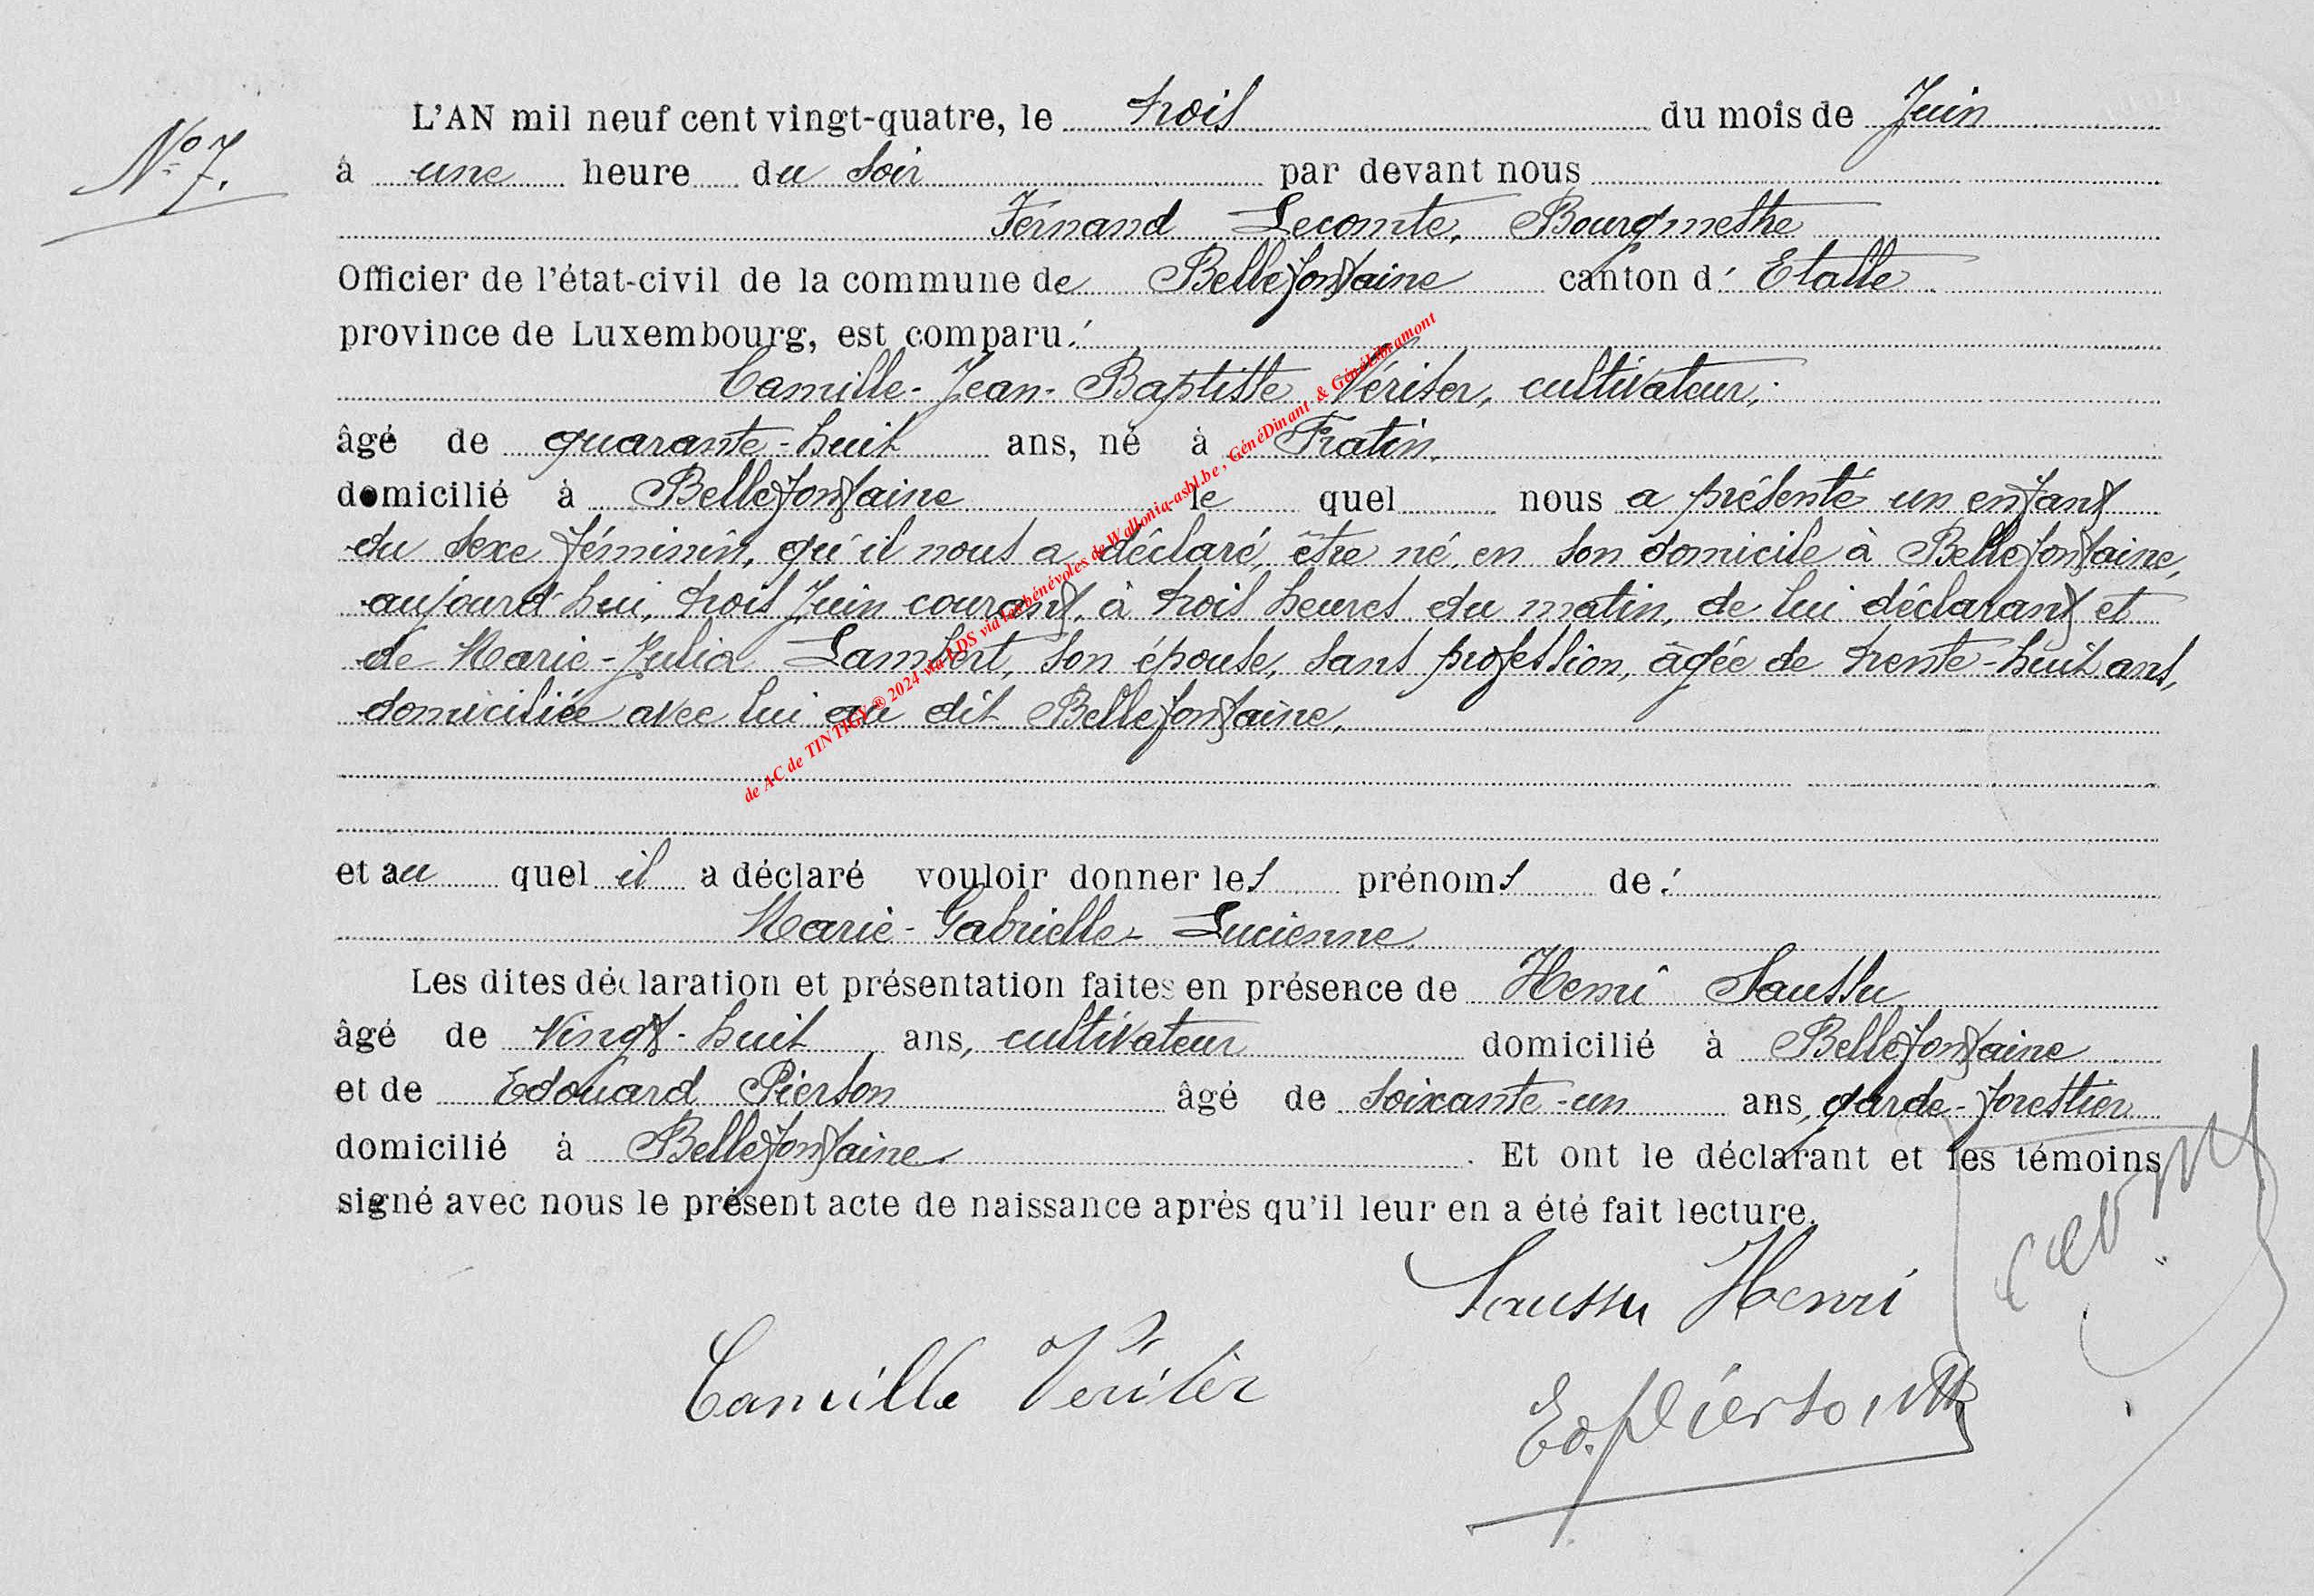 N° 7.
L'AN mil neuf cent vingt-quatre, le trois du mois de Juin
à une heure du soir par devant nous
Fernand Lecomte, Bourgmestre
Officier de l'état-civil de la commune de Bellefontaine canton d' Etalle
province de Luxembourg, est comparu :
Camille-Jean-Baptiste Vériter, cultivateur,
âgé de quarante-huit ans, né à Fratin,
domicilié à Bellefontaine le quel nous a présenté un enfant
du sexe féminin, qu'il nous a déclaré, être né, en son domicile à Bellefontaine,
aujourd'hui, trois Juin courant, à trois heures du matin, de lui déclarant et
de Marie-Julia Lambert, son épouse, sans profession, âgée de trente-huit ans,
domiciliée avec lui au dit Bellefontaine,
et au quel il a déclaré vouloir donner les prénoms de :
Marie-Gabrielle-Lucienne.
Les dites déclaration et présentation faites en présence de Henri Saussu
âgé de vingt-huit ans, cultivateur domicilié à Bellefontaine
et de Edouard Pierson âgé de soixante-un ans, garde-forestier
domicilié à Bellefontaine. Et ont le déclarant et les témoins
signé avec nous le présent acte de naissance après qu'il leur en a été fait lecture.
Saussu Henri
Camille Vériter
Ed. Pierson
de AC de TINTIGY ® 2024 via LDS via les bénévoles de Wallonia-asbl.be, GénéDinant & GénéLibramont